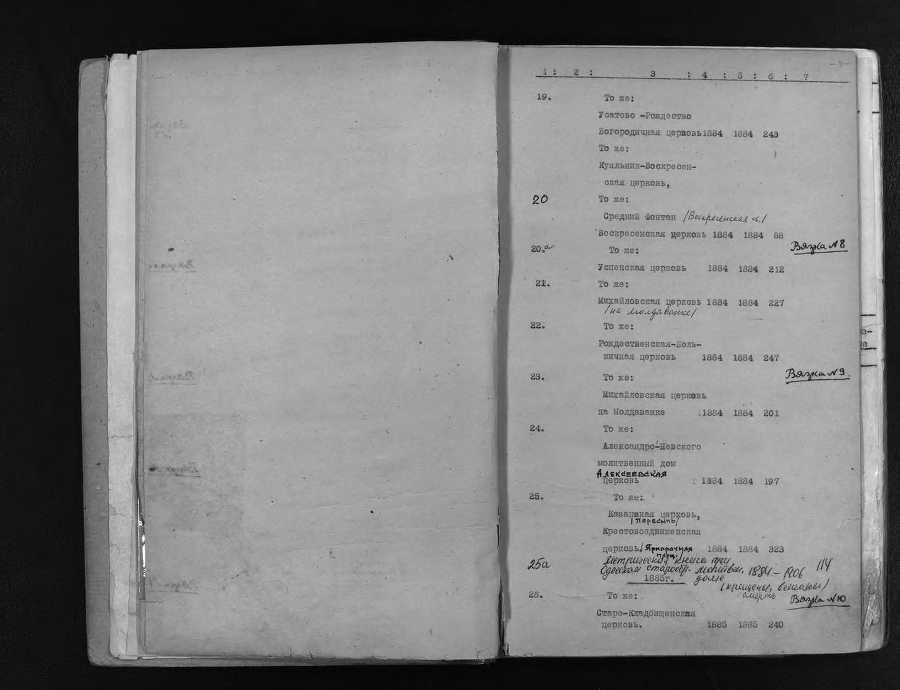 -3-
1 : 2 : 3 : 4 : 5 : 6 : 7
19. То же:
Усатово -Рождество
Богородичная церковь 1884 1884 243
То же:
Куяльник-Воскресен-
ская церковь,
20 То же:
Средний Фонтан /Воскресенская ц./
Воскресенская церковь 1884 1884 88
Вязка №8
20.а То же:
Успенская церковь 1884 1884 212
21. То же:
Михайловская церковь 1884 1884 227
/на молдаванке/
22. То же:
Рождественская-Боль-
ничная церковь 1884 1884 247
Вязка №9.
23. То же:
Михайловская церковь
на Молдаванке 1884 1884 201
24. То же:
Александро-Невского
молитвенный дом
Алексеевская
церковь 1884 1884 197
25. То же:
Казанская церковь,
/Пересыпь/
Крестовоздвиженская
церковь/Ярмарочная 1884 1884 323
площ./
25а Метрическая книга при
Одесском старообр. молитвен. 1884-1906 114
1885г. доме
/крещеные, венчаные/
смерть
Вязка №10
26. То же:
Старо-Кладбищенская
церковь. 1885 1885 240